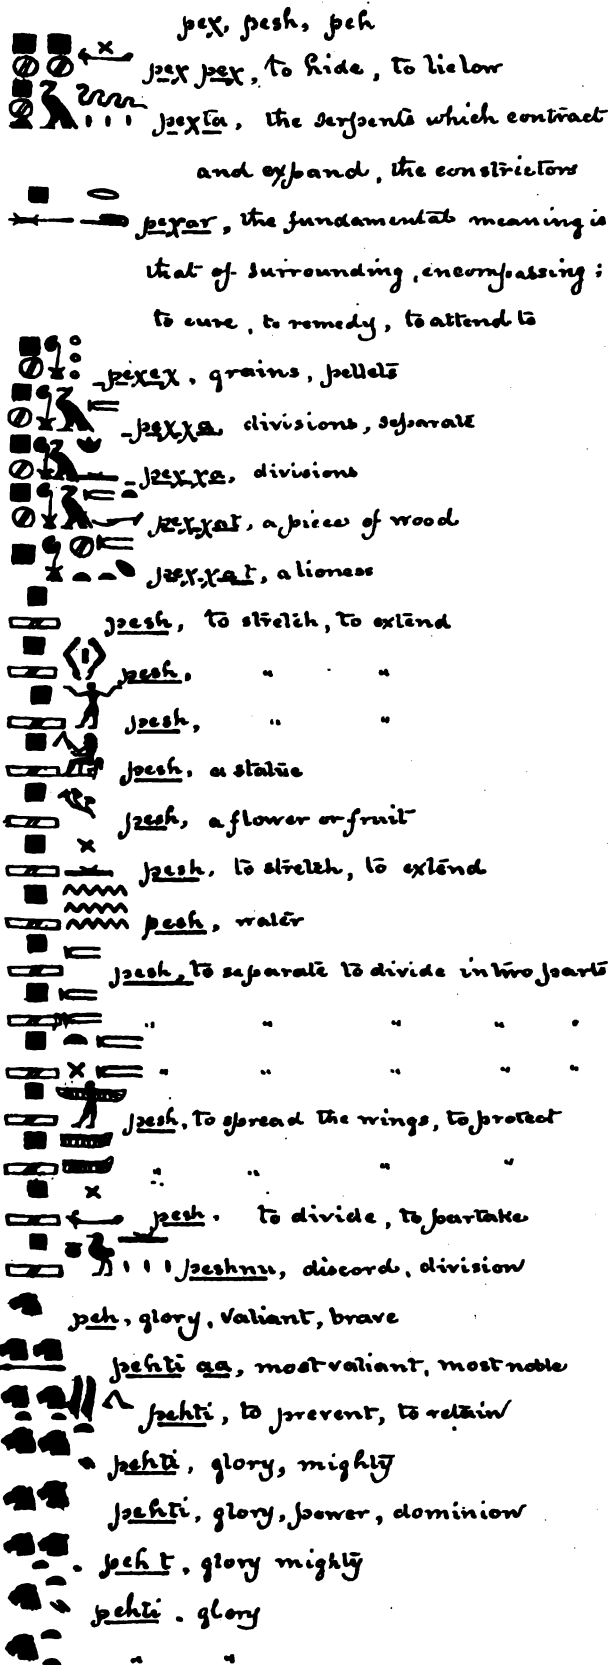 pex, pesh, peh
pex pex, to hide, to lie low
pexta, the serpents which contract
and expand, the constrictors
pexar, the fundamental meaning is
that of surrounding, encompassing;
to cure, to remedy, to attend to
pexex, grains, pellets
pexxa, divisions, separate
pexxa, divisions
pexxat, a piece of wood
pexxat, a lioness
pesh, to stretch, to extend
pesh, " "
pesh, " "
pesh, a statue
pesh, a flower or fruit
pesh, to stretch, to extend
pesh, water
pesh, to separate to divide in two parts
" " " " "
" " " " "
pesh, to spread the wings, to protect
" " " "
pesh. to divide, to partake
peshnu, discord, division
peh, glory, valiant, brave
pehti aa, most valiant, most noble
pehti, to prevent, to retain
pehti, glory, mighty
pehti, glory, power, dominion
peh t, glory mighty
pehti. glory
" "